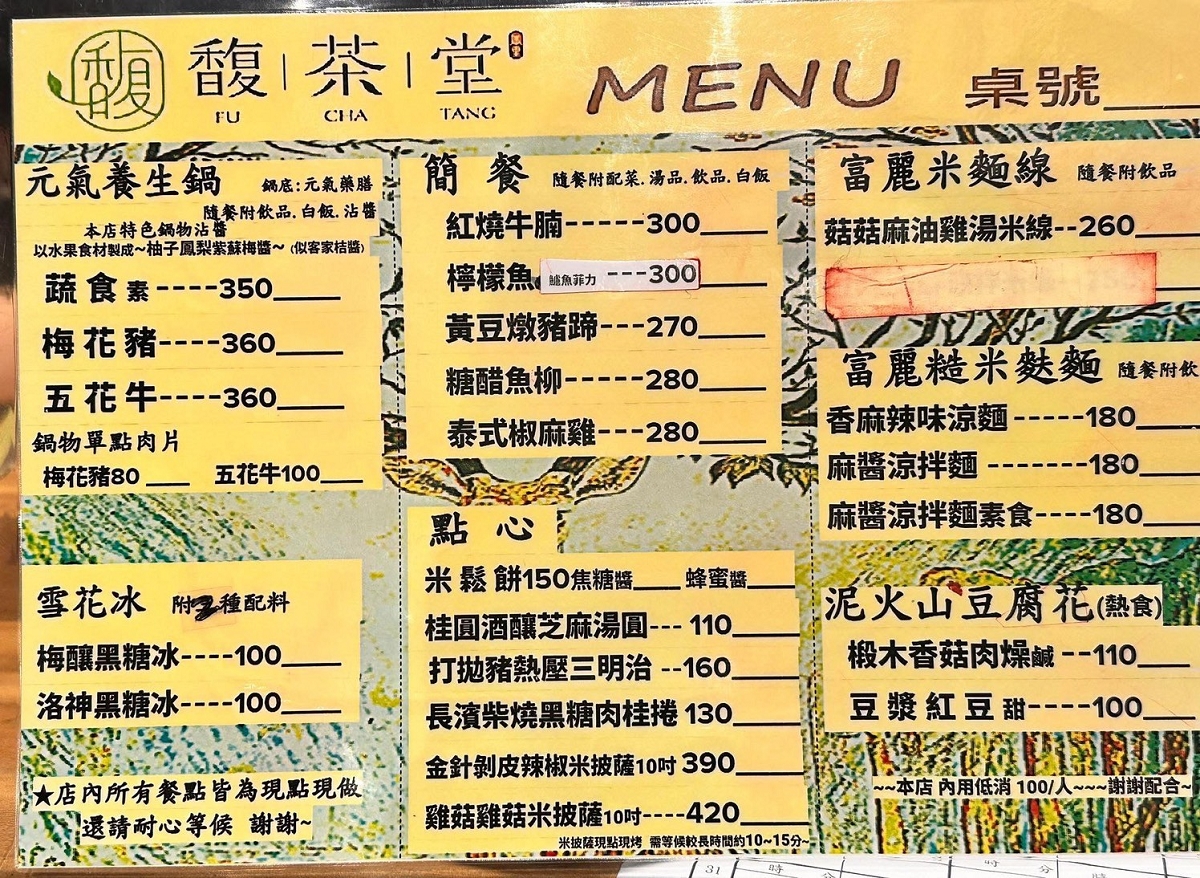 馥 馥|茶|堂
FU CHA TANG
MENU 桌號____
元氣養生鍋 鍋底:元氣藥膳
隨餐附飲品.白飯.沾醬
本店特色鍋物沾醬
以水果食材製成~柚子鳳梨紫蘇梅醬~(似客家桔醬)
蔬食素----350____
梅花豬----360____
五花牛----360____
鍋物單點肉片
梅花豬80 ____ 五花牛100____
雪花冰 附 種配料
梅釀黑糖冰----100____
洛神黑糖冰----100____
★店內所有餐點皆為現點現做
還請耐心等候 謝謝~
簡餐 隨餐附配菜.湯品.飲品.白飯
紅燒牛腩-----300____
檸檬魚 鱸魚菲力 ---300
黃豆燉豬蹄---270____
糖醋魚柳-----280____
泰式椒麻雞---280____
點心
米鬆餅150焦糖醬____ 蜂蜜醬____
桂圓酒釀芝麻湯圓--- 110____
打拋豬熱壓三明治 --160____
長濱柴燒黑糖肉桂捲 130____
金針剝皮辣椒米披薩10吋 390____
雞菇雞菇米披薩10吋----420____
米披薩現點現烤 需等候較長時間約10~15分~
富麗米麵線 隨餐附飲品
菇菇麻油雞湯米線--260____
富麗糙米麩麵 隨餐附飲
香麻辣味涼麵 -----180____
麻醬涼拌麵 -------180____
麻醬涼拌麵素食----180____
泥火山豆腐花(熱食)
椴木香菇肉燥鹹 --110____
豆漿紅豆 甜----100____
~~本店 內用低消 100/人~~~謝謝配合~
31 時 分 時